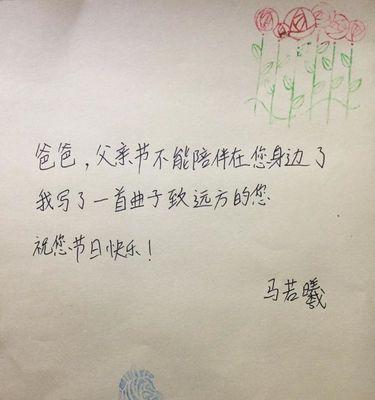 爸爸，父亲节不能陪伴在您身边了
我写了一首曲子致远方的您
祝您节日快乐！
马若曦